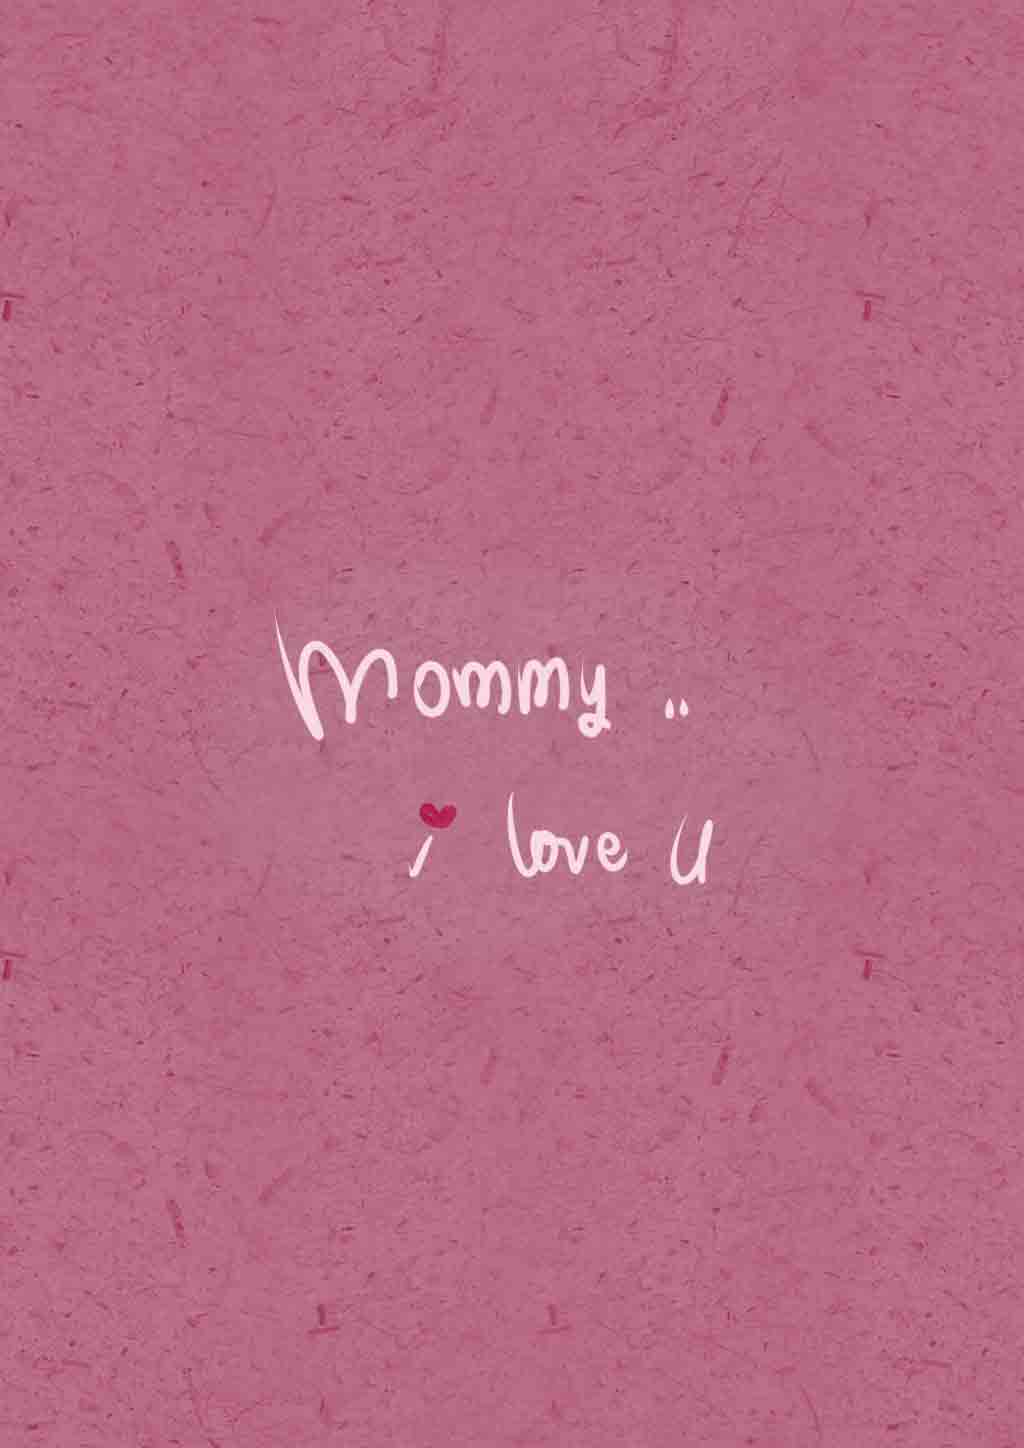 Mommy ..
i love u